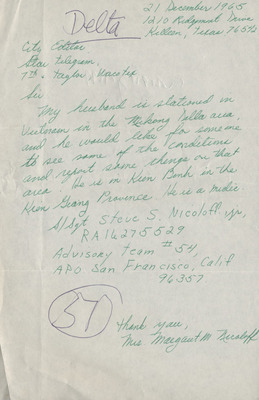 Delta
21 December 1965
1210 Ridgemont Drive
Killeen, Texas 76543
City Editor
Star Telegram,
7th & Taylor
Sir
My husband is stationed in
Vietnam in the Mekong Delta area,
and he would like for someone
to see some of the conditions
and report some things on that
area. He is in Kien Binh in the
Kien Giang Provence. He is a medic.
S/Sgt Steve S. Nicoloff Jr,
RA16275529
Advisory Team #54,
APO San Francisco, Calif
96357
57
Thank you,
Mrs Margaret M. Nicoloff